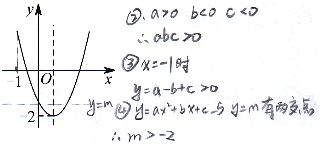 y
②. a>0 b<0 c<0
∴ abc>0
③ x=-1时
-1 O x
y=a-b+c>0
y=m
④ y=ax²+bx+c与 y=m 有两交点
-2
∴ m>-2